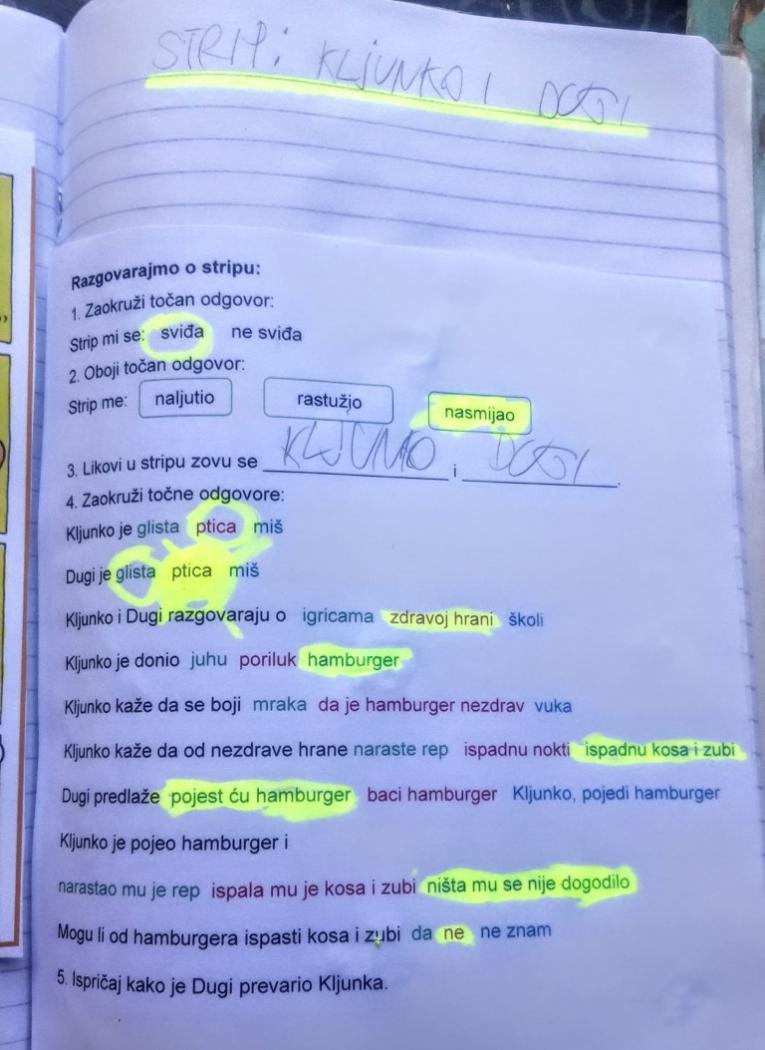 STRIP: KLJUNKO I DUGI
Razgovarajmo o stripu:
1. Zaokruži točan odgovor:
Strip mi se: sviđa ne sviđa
2. Oboji točan odgovor:
Strip me: naljutio rastužjo nasmijao
3. Likovi u stripu zovu se KLJUNO i DUGI.
4. Zaokruži točne odgovore:
Kljunko je glista ptica miš
Dugi je glista ptica miš
Kljunko i Dugi razgovaraju o igricama zdravoj hrani školi
Kljunko je donio juhu poriluk hamburger
Kljunko kaže da se boji mraka da je hamburger nezdrav vuka
Kljunko kaže da od nezdrave hrane naraste rep ispadnu nokti ispadnu kosa i zubi
Dugi predlaže pojest ću hamburger baci hamburger Kljunko, pojedi hamburger
Kljunko je pojeo hamburger i
narastao mu je rep ispala mu je kosa i zubi ništa mu se nije dogodilo
Mogu li od hamburgera ispasti kosa i zubi da ne ne znam
5. Ispričaj kako je Dugi prevario Kljunka.